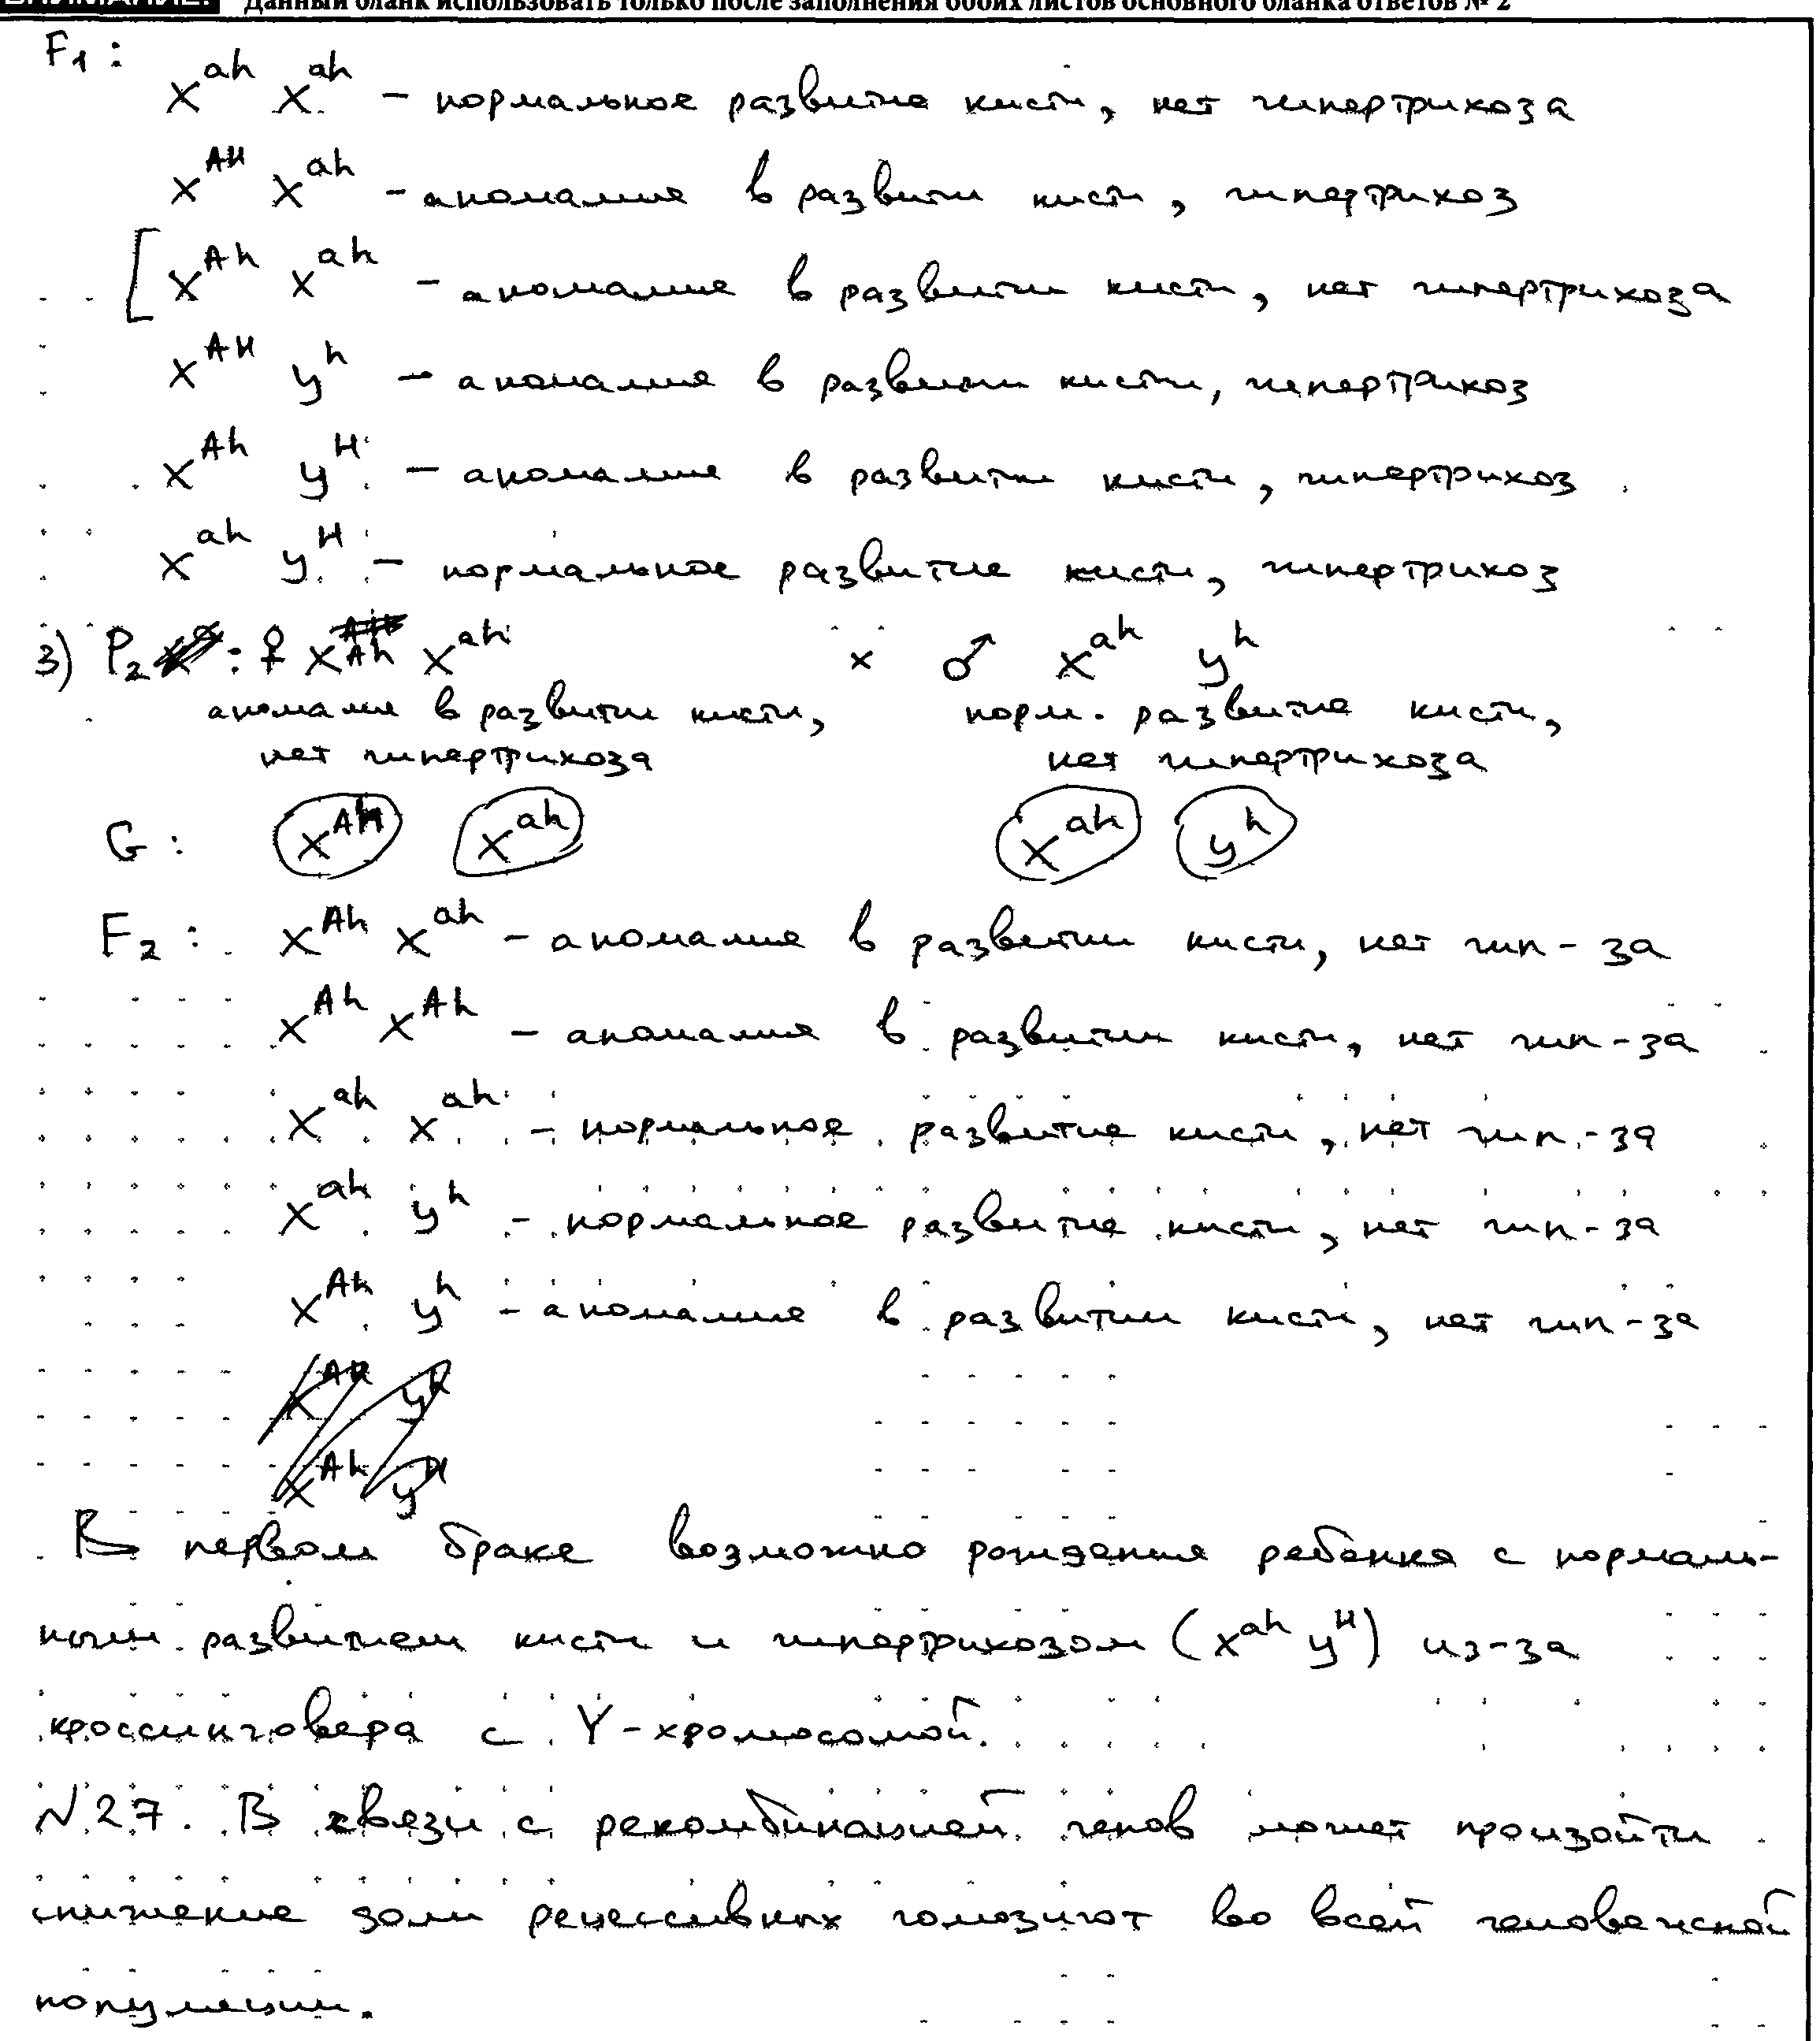 Данный бланк использовать только после заполнения обоих листов основного бланка ответов № 2
F₁:
X^ah X^ah – нормальное развитие кисти, нет гипертрихоза
X^AH X^ah – аномалие в развити кисти, гипертрихоз
[ X^Ah X^ah – аномалие в развитии кисти, нет гипертрихоза
X^AH y^h – аномалие в развитии кисти, гипертрихоз
X^Ah y^H – аномалие в развитии кисти, гипертрихоз
X^ah y^H – нормальное развитие кисти, гипертрихоз
3) P₂ : ♀ X^Ah X^ah × ♂ X^ah y^h
аномалие в развитии кисти, норм. развитие кисти,
нет гипертрихоза нет гипертрихоза
G: X^Ah X^ah X^ah y^h
F₂: X^Ah X^ah – аномалие в развитии кисти, нет гип-за
X^Ah X^Ah – аномалия в развитии кисти, нет гип-за
X^ah X^ah – нормальное развитие кисти, нет гип-за
X^ah y^h – нормальное развитие кисти, нет гип-за
X^Ah y^h – аномалие в развитии кисти, нет гип-за
В первом браке возможно рождения ребёнка с нормаль-
ным развитием кисти и гипертрихозом (X^ah y^H) из-за
кроссинговера с Y-хромосомой.
N27. В связи с рекомбинацией генов может произойти
снижение доли рецессивных гомозигот во всей человеческой
популяции.